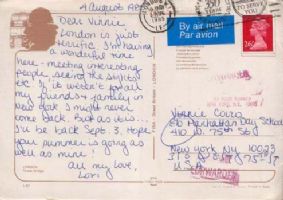 4 August 1985
Dear Vinnie,
London is just
terrific. I'm having
a wonderful time
here - meeting interesting
people, seeing the sights,
etc. If it weren't for all
my friends & family in
New York I might never
come back. But as it is...
I'll be back Sept. 3. Hope
your summer is going as
well as mine!
All my love,
Lori
LONDON
Tower Bridge
By air mail
Par avion
Vinnie
c/o Manhattan Day School
310 W. 75th St
New York, NY 10023
U.S.A.
FORWARDED